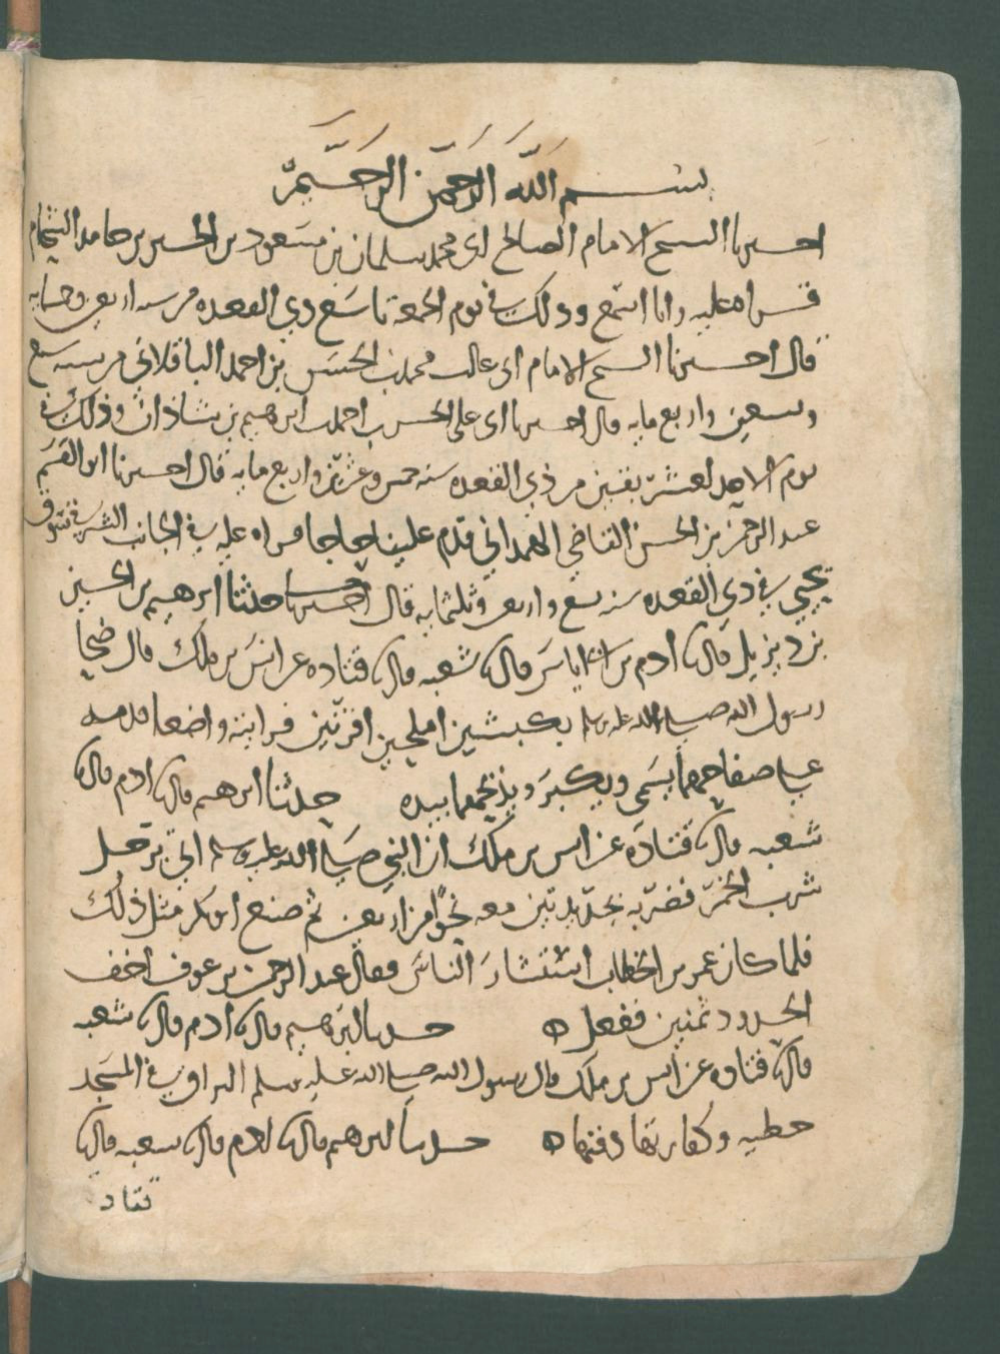 بسم الله الرحمن الرحيم
اخبرنا الشيخ الامام الصالح ابى محمد سلمان بن مسعود بن الحسين بن حامد الشحام
قراة عليه وانا اسمع وذلك في يوم الجمعة تاسع ذي القعده من سنه اربعين وخمسمايه
قال اخبرنا الشيخ الامام ابى غالب محمد بن الحسن بن احمد الباقلانى من سنه سبع
وتسعين واربع مايه قال اخبرنا ابى على الحسن بن احمد بن ابرهيم بن شاذان وذلك في
يوم الاحد لعشر بقين من ذي القعده سنه خمس وعشرين واربع مايه قال اخبرنا ابو القسم
عبد الرحمن بن الحسن القاضي الهمداني قدم علينا حاجا قراه عليه في الجانب الشرقي في سوق
يحيى في ذي القعده سنه سبع واربعين وثلثمايه قال حدثنا ابرهيم بن الحسين
بن ديزيل قال ادم بن ابى اياس قال شعبه قال قتاده عن انس بن ملك قال ضحا
رسول الله صلى الله عليه وسلم بكبشين املحين اقرنين فرايته واضعا قدمه
على صفاحهما يسمى ويكبر ويذبحهما بيده حدثنا ابرهيم قال ادم قال
شعبه قال قتاده عن انس بن ملك ان النبي صلى الله عليه وسلم اتى برجل
شرب الخمر فضربه بجريدتين معه نحوا من اربعين ثم صنع ابو بكر مثل ذلك
فلما كان عمر بن الخطاب استشار الناس فقال عبد الرحمن بن عوف اخف
الحدود ثمنين ففعل ه حدثنا ابرهيم قال ادم قال شعبه
قال قتاده عن انس بن ملك قال رسول الله صلى الله عليه وسلم البزاق في المسجد
خطيه وكفارتها دفنها ه حدثنا ابرهيم قال ادم قال شعبه قال
قتاد